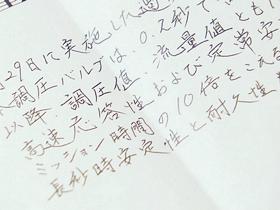 月29日に実施した過
調圧バルブは、0.2秒で
以降、調圧値・流量値とも
高速応答性および定常安
ミッション時間の10倍をこえる
長秒時安定性と耐久性